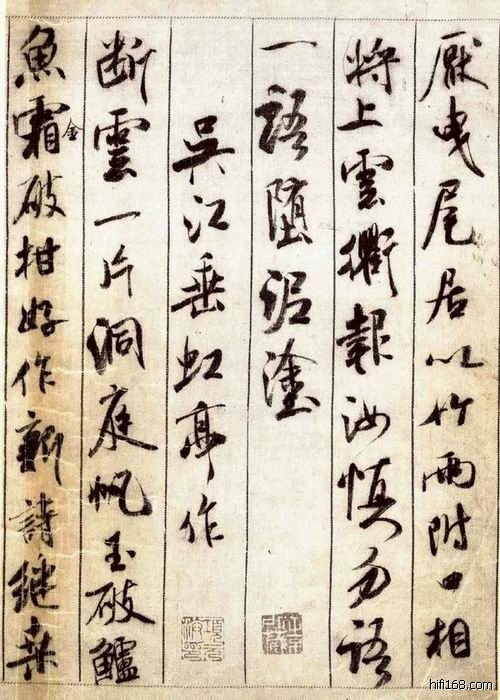 厭曳尾居以竹兩附口相
將上雲衢報汝慎勿語
一語墮泥塗
吳江垂虹亭作
断雲一片洞庭帆玉破鱸
魚霜金破柑好作新詩継桑
hifi168.com